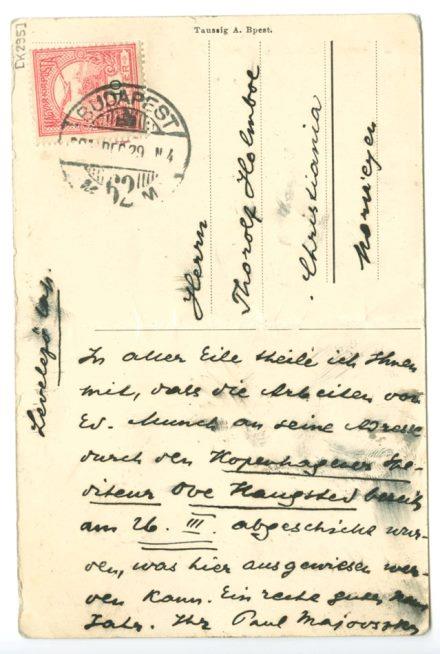 [K295]
Taussig A. Bpest.
BUDAPEST
DEC 29 N 4
Levelező lap.
Herrn
Thorolf Holmboe
Christiania
Norwegen
In aller Eile theile ich Ihnen
mit, dass die Arbeiten von
Ed. Munch an seine Adresse
durch den Kopenhagener Spe-
diteur Ove Haugsted bereits
am 26. III. abgeschickt wur-
den, was hier ausgewiesen wer-
den kann. Ein recht gutes neues
Jahr. Ihr Paul Majovszky